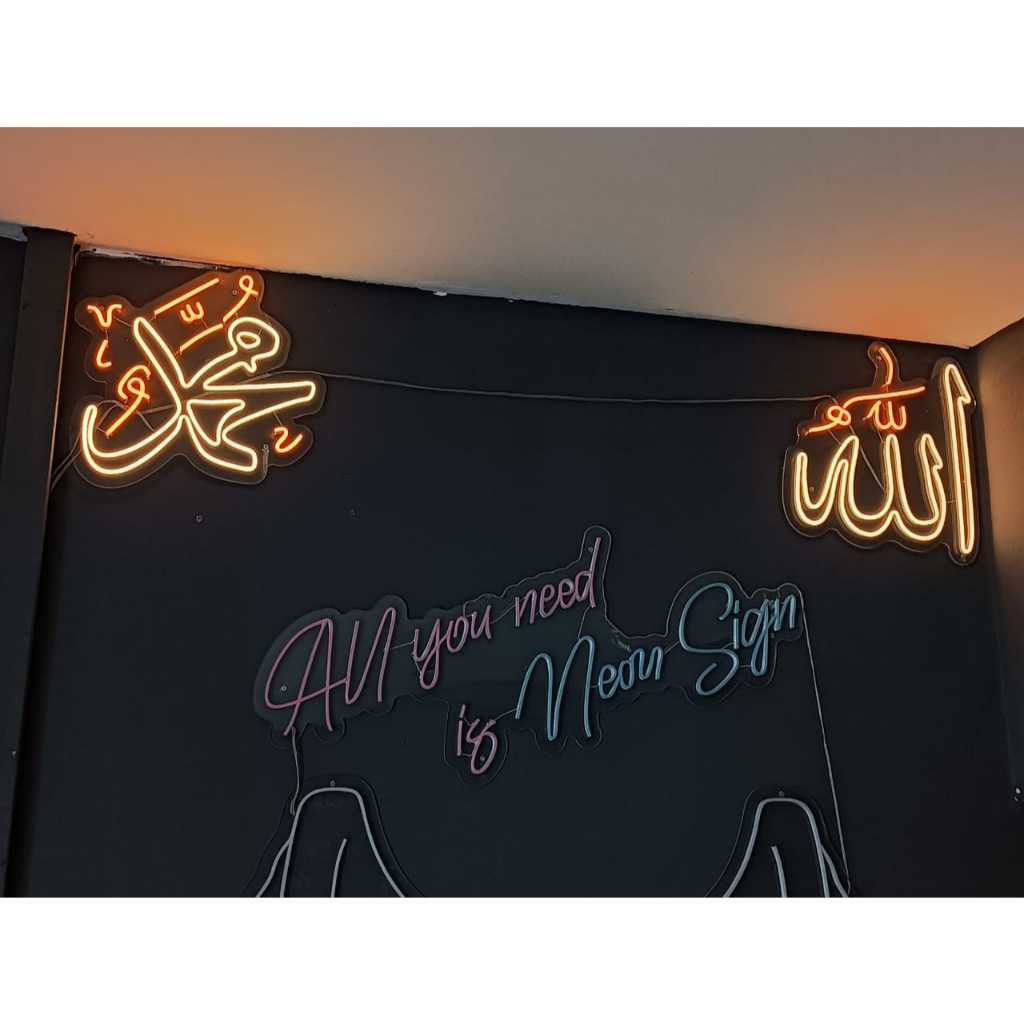 محمد
الله
All you need
is Neon Sign